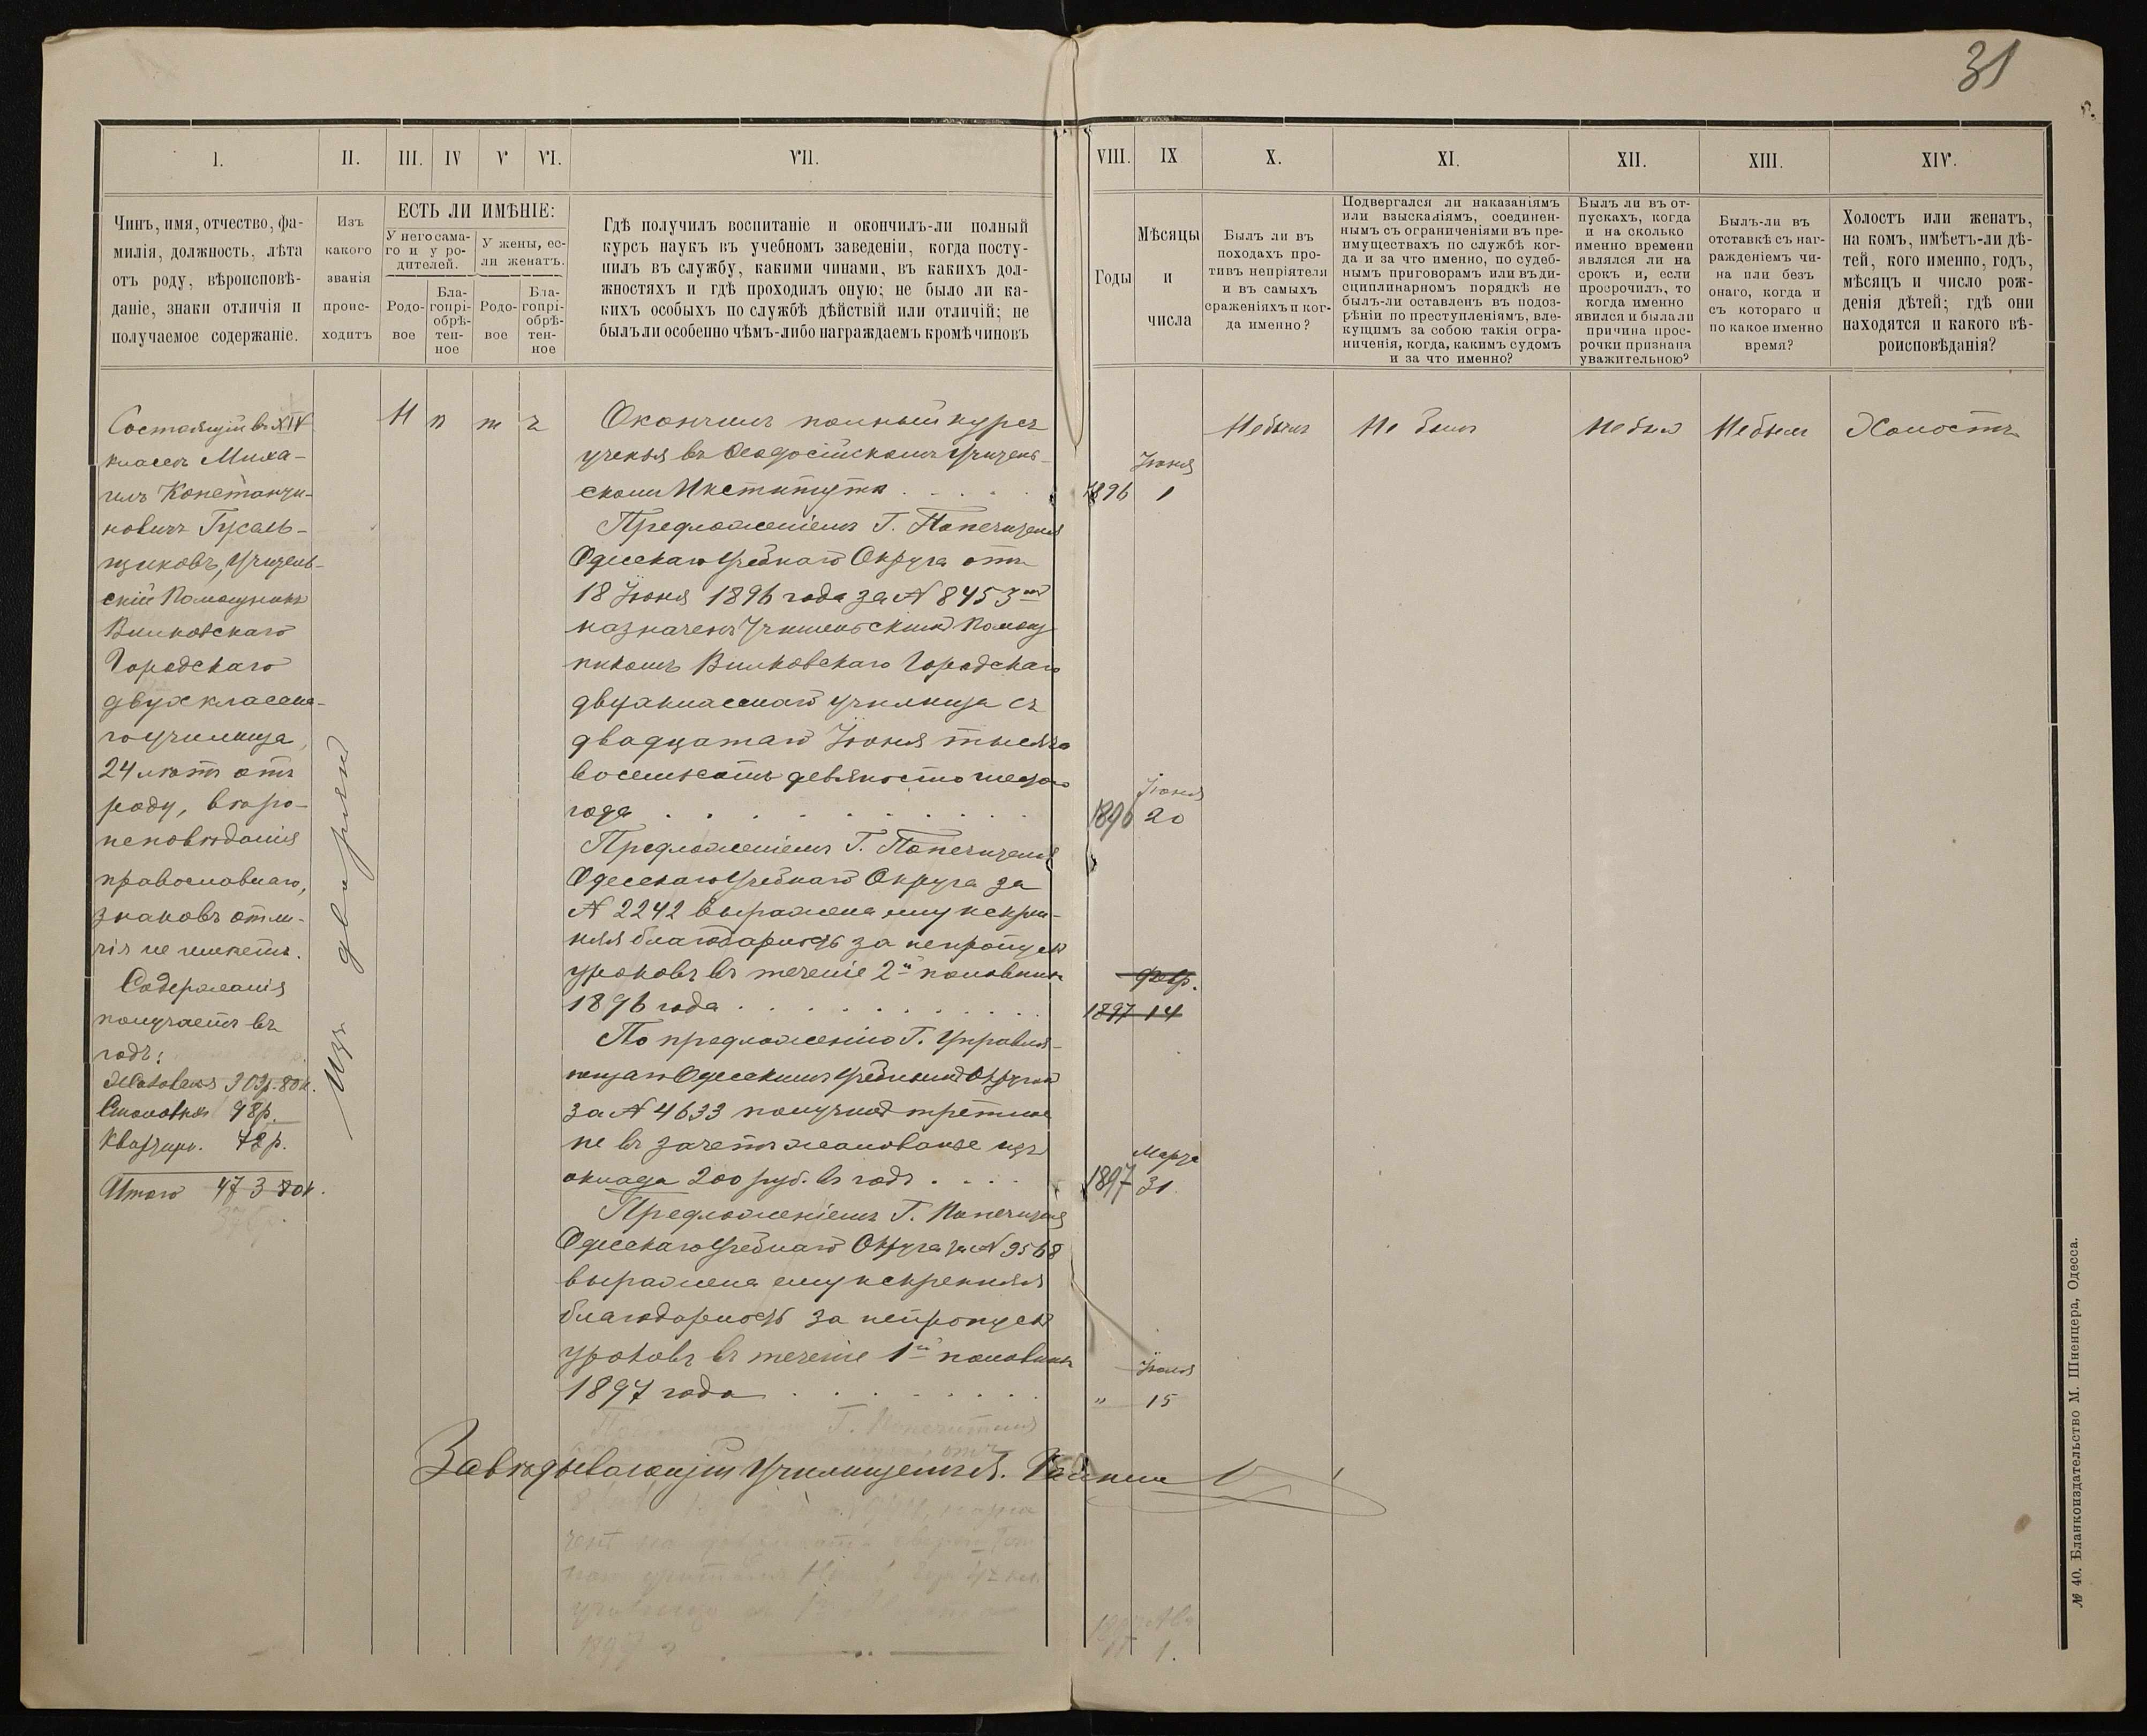 31
I.
II.
III.
IV
V
VI.
VII.
VIII.
IX
X.
XI.
XII.
XIII.
XIV.
Чинъ, имя, отчество, фа-
милія, должность, лѣта
отъ роду, вѣроисповѣ-
даніе, знаки отличія и
получаемое содержаніе.
Изъ
какого
званія
проис-
ходитъ
ЕСТЬ ЛИ ИМѢНІЕ:
У него сама-
го и у ро-
дителей.
У жены, ес-
ли женатъ.
Родо-
вое
Бла-
гопрі-
обрѣ-
тен-
ное
Родо-
вое
Бла-
гопрі-
обрѣ-
тен-
ное
Гдѣ получилъ воспитаніе и окончилъ-ли полный
курсъ наукъ въ учебномъ заведеніи, когда посту-
пилъ въ службу, какими чинами, въ какихъ дол-
жностяхъ и гдѣ проходилъ оную; не было ли ка-
кихъ особыхъ по службѣ дѣйствій или отличій; не
былъ ли особенно чѣмъ-либо награждаемъ кромѣ чиновъ
Годы
Мѣсяцы
и
числа
Былъ ли въ
походахъ про-
тивъ непріятеля
и въ самыхъ
сраженіяхъ и ког-
да именно?
Подвергался ли наказаніямъ
или взысканіямъ, соединен-
нымъ съ ограниченіями въ пре-
имуществахъ по службѣ ког-
да и за что именно, по судеб-
нымъ приговорамъ или въ ди-
сциплинарномъ порядкѣ не
былъ-ли оставленъ въ подоз-
рѣніи по преступленіямъ, вле-
кущимъ за собою такія огра-
ниченія, когда, какимъ судомъ
и за что именно?
Былъ ли въ от-
пускахъ, когда
и на сколько
именно времени
являлся ли на
срокъ и, если
просрочилъ, то
когда именно
явился и была ли
причина прос-
рочки признана
уважительною?
Былъ-ли въ
отставкѣ съ наг-
ражденіемъ чи-
на или безъ
онаго, когда и
съ котораго и
по какое именно
время?
Холостъ или женатъ,
на комъ, имѣетъ-ли дѣ-
тей, кого именно, годъ,
мѣсяцъ и число рож-
денія дѣтей; гдѣ они
находятся и какого вѣ-
роисповѣданія?
Состоящій въ XIV
классѣ Миха-
илъ Константи-
новичъ Гусель-
щиковъ, Учитель-
скій Помощникъ
Вилковскаго
Городскаго
двухкласснa-
го училища,
24 лѣтъ отъ
роду, вѣро-
исповѣданія
православнаго,
знаковъ отли-
чія не имѣетъ.
Содержанія
получаетъ въ
годъ:
Жалованья 303р. 80к.
Столовыхъ 98р.
Квартирн. 72р.
Итого 473 80к.
Изъ дворянъ
Н
ѣ
т
ъ
Окончилъ полный курсъ
ученья въ Ѳеодосійскомъ Учитель-
скомъ Институтѣ . . . . .
1896
Іюня
1
Предложеніемъ Г. Попечителя
Одесскаго Учебнаго Округа отъ
18 Іюня 1896 года за № 8453мъ
назначенъ Учительскимъ Помощ-
никомъ Вилковскаго Городскаго
двухкласснаго училища съ
двадцатаго Іюня тысяча
восемьсотъ девяносто шестаго
года . . . . . . . . .
1896
Іюня
20
Предложеніемъ Г. Попечителя
Одесскаго Учебнаго Округа за
№ 2242 выражена ему искрен-
няя благодарность за непропускъ
уроковъ въ теченіе 2й половины
1896 года . . . . . . . .
1897
Февр.
14
По предложенію Г. Управля-
ющаго Одесскимъ Учебнымъ Округомъ
за № 4633 получилъ третное
не въ зачетъ жалованье изъ
оклада 200 руб. въ годъ . . . .
1897
Марта
31
Предложеніемъ Г. Попечителя
Одесскаго Учебнаго Округа за № 9568
выражена ему искренняя
благодарность за непропускъ
уроковъ въ теченіе 1й половины
1897 года . . . . . . .
"
Іюля
15
Не былъ
Не былъ
Не былъ
Не былъ
Холостъ
Завѣдывающій Училищемъ
№ 40. Бланкоиздательство М. Шпенцера, Одесса.